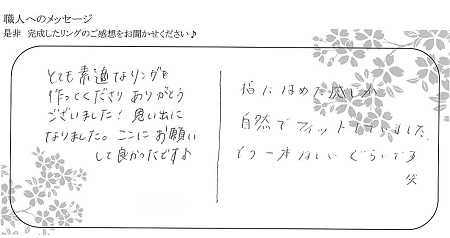 職人へのメッセージ
是非 完成したリングのご感想をお聞かせください♪
とても素適なリングを
作ってくださりありがとう
ございました！思い出に
なりました。ここにお願い
して良かったです♪
指にはめた感じが
自然でフィットしていました。
もう一本ほしいぐらいです
笑